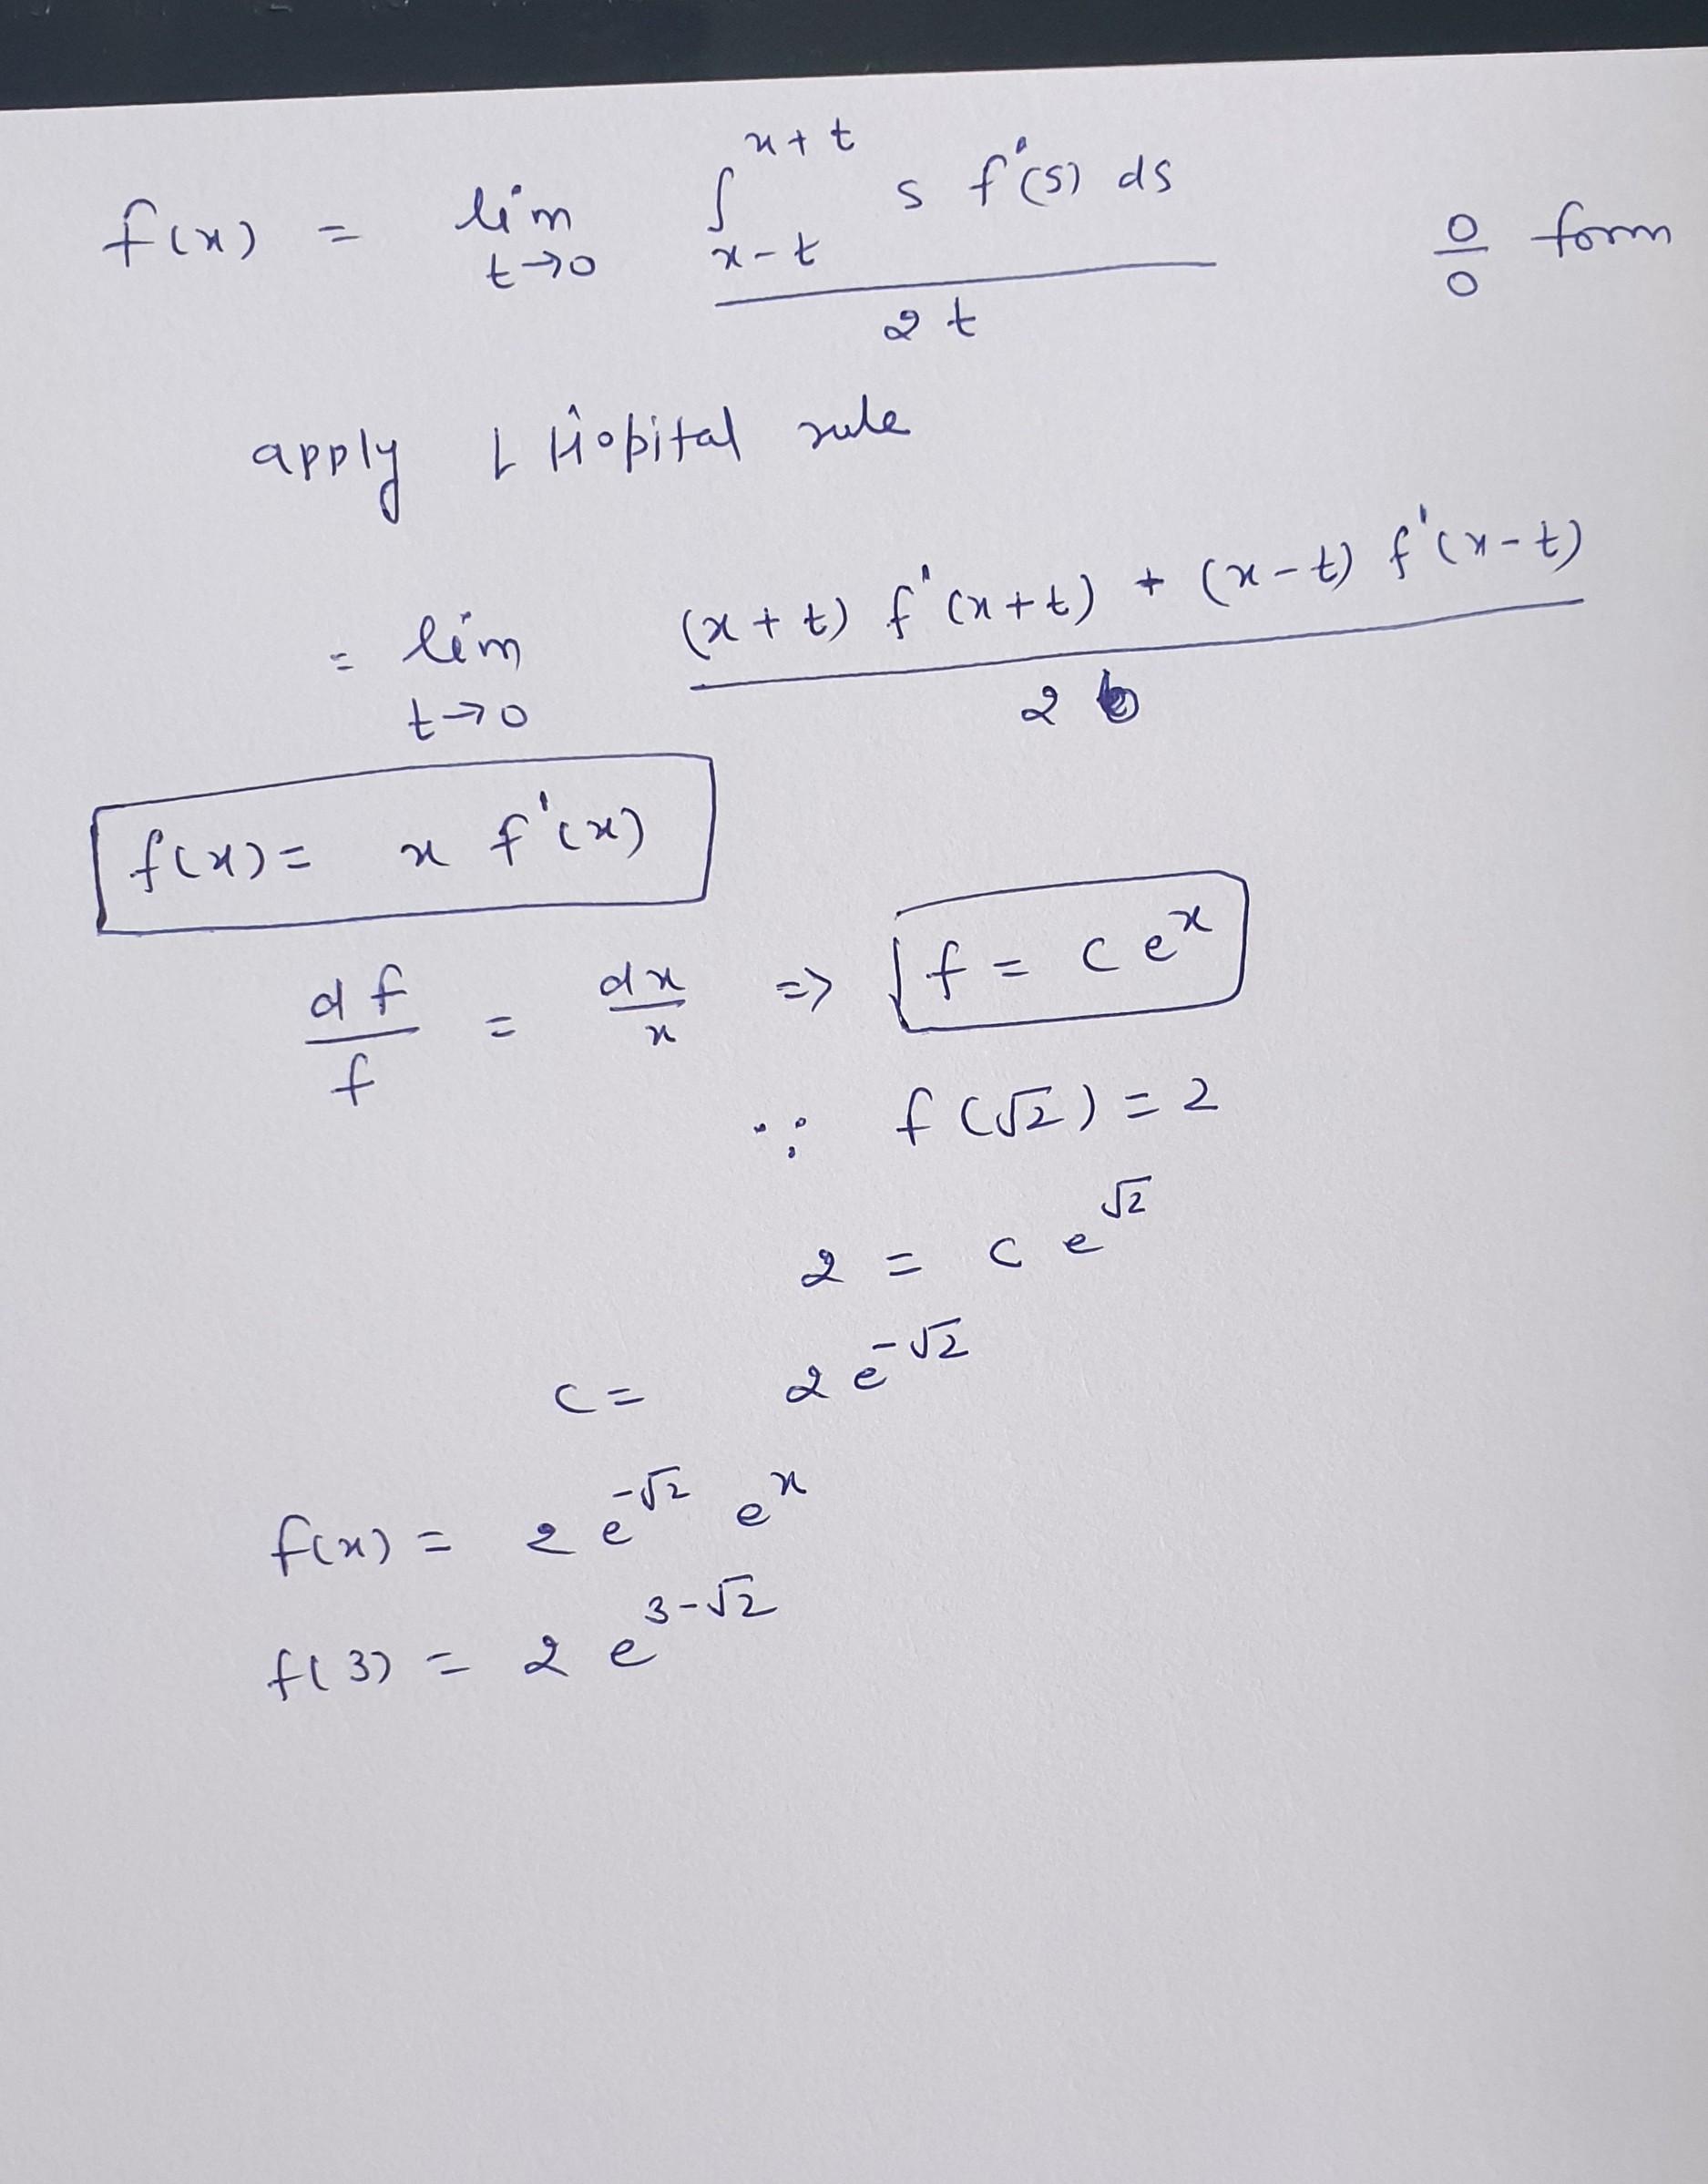 f(x) = lim t→0 ∫ x-t x+t s f'(s) ds / 2t 0/0 form
apply L Hôpital rule
= lim t→0 (x+t) f'(x+t) + (x-t) f'(x-t) / 2
f(x) = x f'(x)
df/f = dx/x => f = c e^x
∵ f(√2) = 2
2 = c e^√2
c = 2 e^-√2
f(x) = 2 e^-√2 e^x
f(3) = 2 e^3-√2